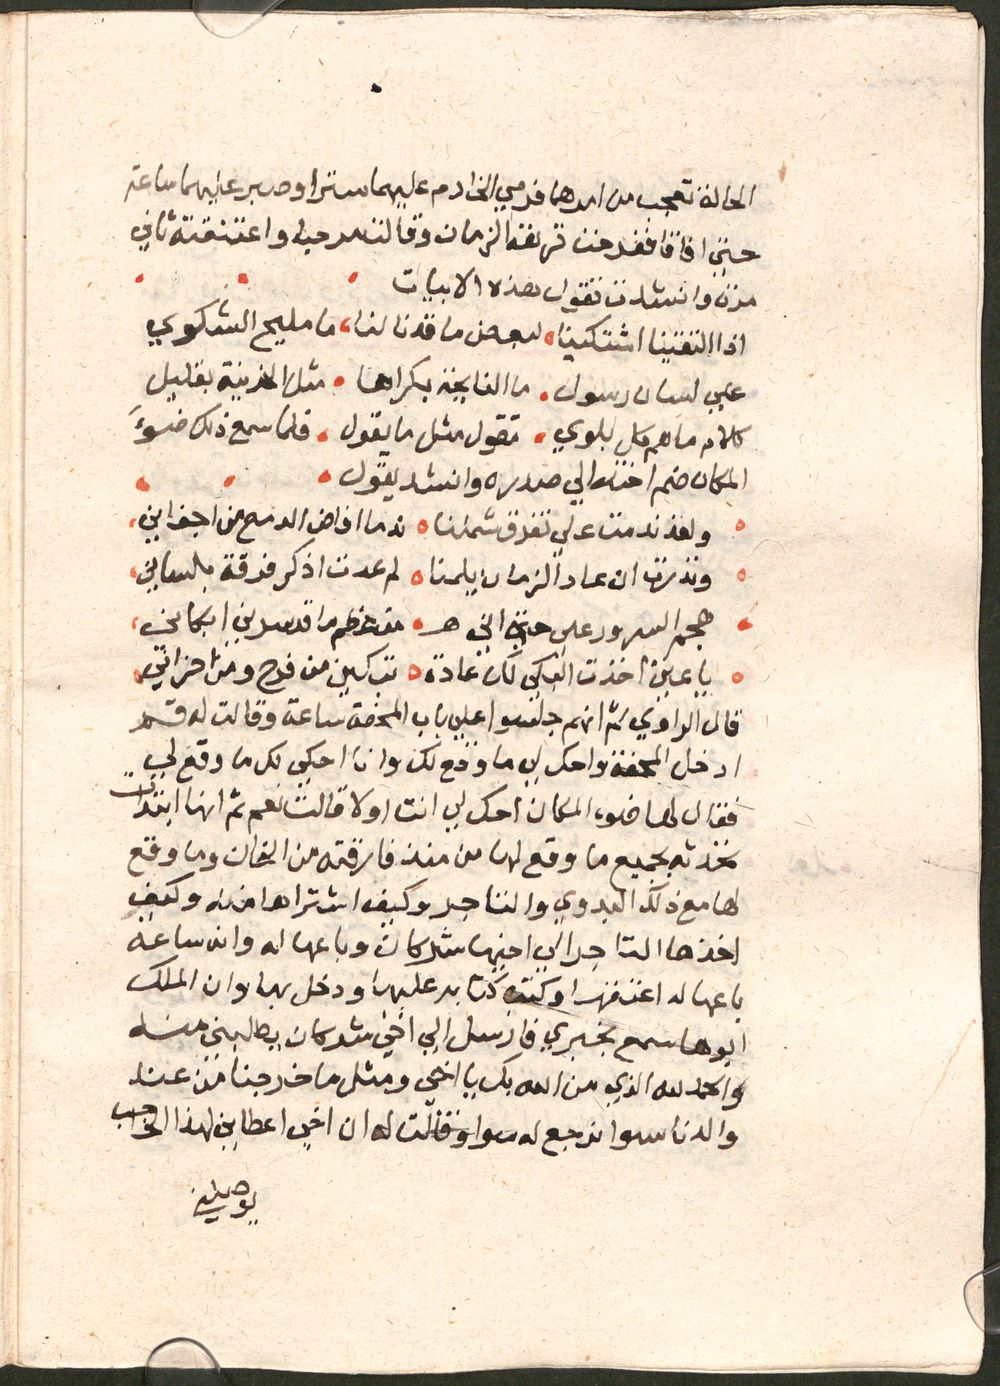 الحالة تعجب من امرهما فرمي الخادم عليهما سترا وصبر عليهما ساعة
حتي افاقا ففرحت نزهة الزمان وقالت مرحبا واعتنقته ثاني
مرة وانشدت تقول هذه الابيات
اذا التقتينا اشتكينا لبعض ما قد نالنا ما مليح الشكوي
علي لسان رسول ما النايحة بكراها مثل الحزينة بقليل
كلا ولا من هو بلوي تقول مثل ما يقول فلما سمع ذلك ضوء
المكان ضم اخته الي صدره وانشد يقول
ولقد ندمت علي تفرق شملنا ندما افاض الدمع من اجفاني
ونذرت ان عاد الزمان يلمنا لم عدت اذكر فرقة بلساني
هجم السرور علي حتي انني من عظم ما قد سرني ابكاني
يا عين اخذت البكي لكي عادة تبكين من فرح ومن احزاني
قال الراوي ثم انهم جلسوا علي باب المحفة ساعة وقالت له قم
ادخل المحفة واحك لي ما وقع لك وانا احكي لك ما وقع لي
فقال لها ضوء المكان احك لي انت اولا قالت نعم ثم انها ابتدات
تحدثه بجميع ما وقع لها من منذ فارقته من الخان وما وقع
لها مع ذلك البدوي والتاجر وكيف اشتراها منه وكيف
اخذها التاجر الي اخيها شركان وباعها له وانه ساعة
باعها له اعتقها وكتب كتابه عليها ودخل بها وان الملك
ابوها سمع بخبري فارسل الي اخي شركان يطلبني منه
والحمد لله الذي من الله بك يا اخي ومثل ما خرجنا من عند
والدنا سوا نرجع له سوا وقالت له ان اخي اعطاني لهذا الحاجب
يوصلني